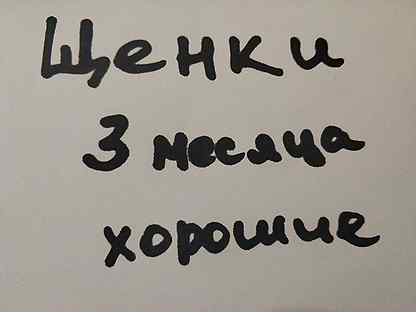 Щенки
3 месяца
хорошие